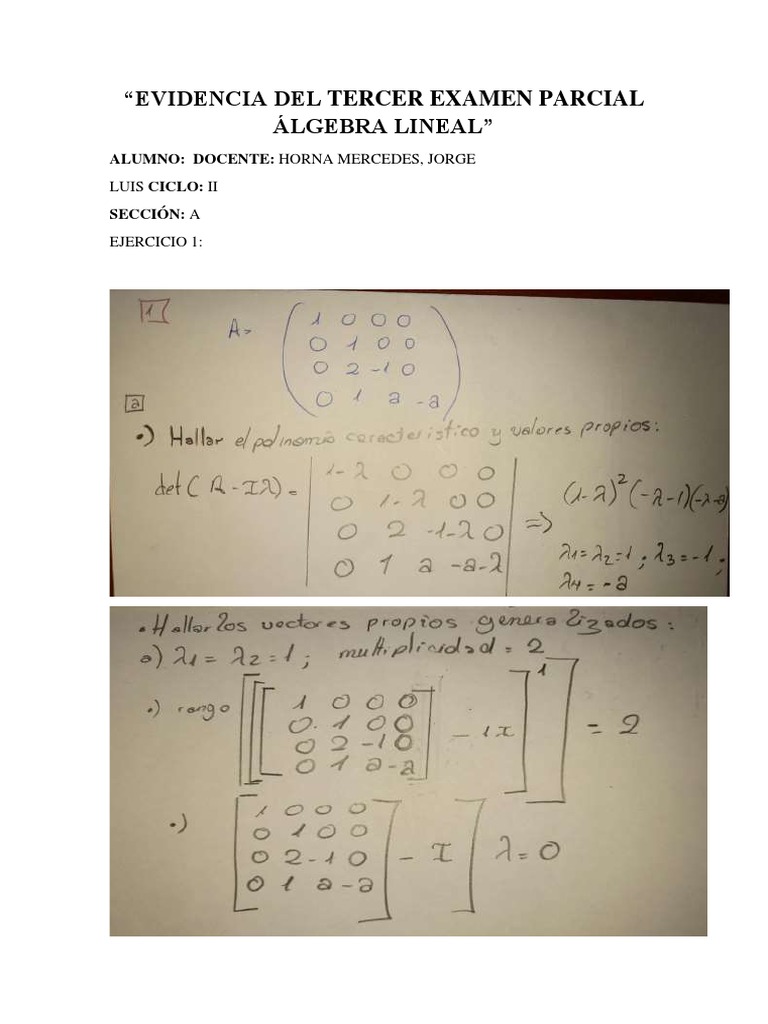 “EVIDENCIA DEL TERCER EXAMEN PARCIAL
ÁLGEBRA LINEAL”
ALUMNO: DOCENTE: HORNA MERCEDES, JORGE
LUIS CICLO: II
SECCIÓN: A
EJERCICIO 1:
1
A=
1 0 0 0
0 1 0 0
0 2 -1 0
0 1 a -a
a
•) Hallar el polinomio característico y valores propios:
det(A - Iλ) =
1-λ 0 0 0
0 1-λ 0 0
0 2 -1-λ 0
0 1 a -a-λ
=> (1-λ)² (-λ-1)(-λ-a)
λ1=λ2=1 ; λ3=-1 ;
λ4=-a
• Hallar los vectores propios generalizados:
a) λ1 = λ2 = 1 ; multiplicidad = 2
•) rango [[[
1 0 0 0
0 1 0 0
0 2 -1 0
0 1 a -a
] - 1I ]¹ ] = 2
•) [[
1 0 0 0
0 1 0 0
0 2 -1 0
0 1 a -a
] - I ] λ = 0